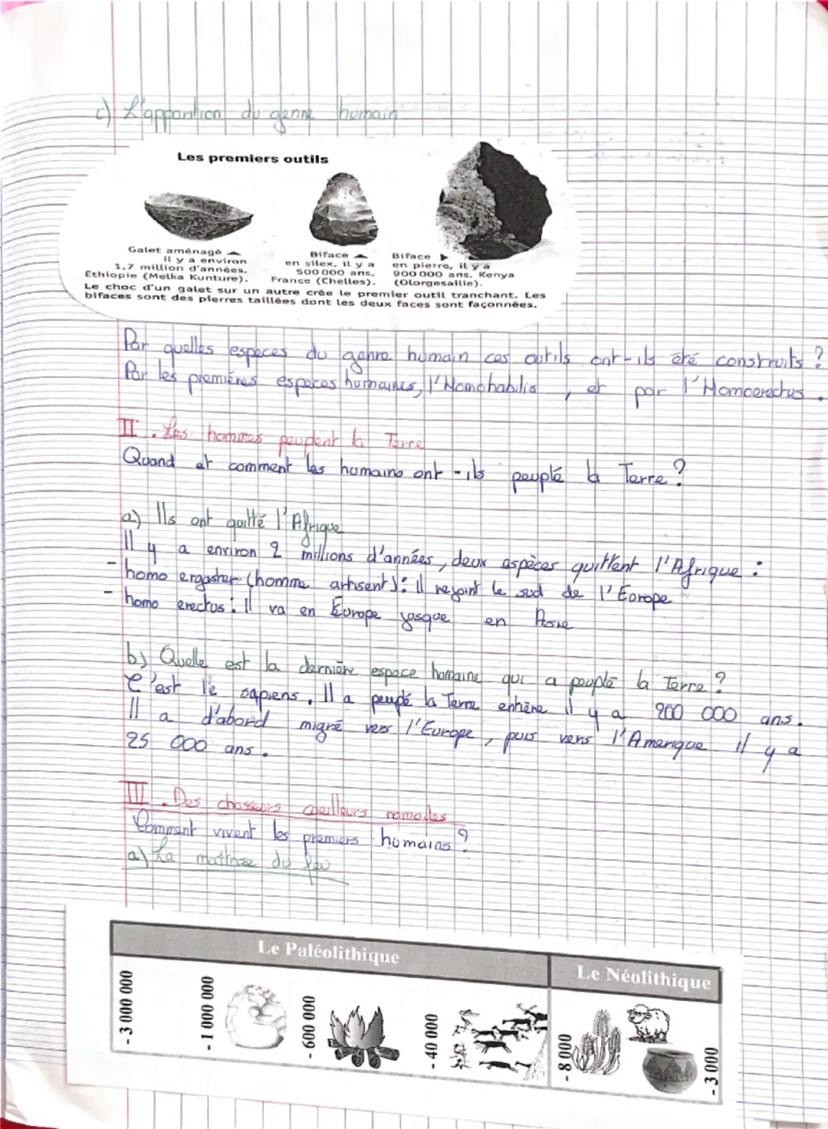 c) L'apparition du genre humain
Les premiers outils
Galet aménagé
il y a environ
1,7 million d'années,
Ethiopie (Melka Kunture).
Biface
en silex, il y a
500 000 ans,
France (Chelles).
Biface
en pierre, il y a
900 000 ans. Kenya
(Olorgesailie).
Le choc d'un galet sur un autre crée le premier outil tranchant. Les
bifaces sont des pierres taillées dont les deux faces sont façonnées.
Par quelles espèces du genre humain ces outils ont-ils été construits ?
Par les premières espèces humaines, l'Homohabilis , et par l'Homoerectus.
II . Les hommes peuplent la Terre
Quand et comment les humains ont-ils peuplé la Terre ?
a) Ils ont quitté l'Afrique
Il y a environ 2 millions d'années, deux espèces quittent l'Afrique :
- homo ergaster (homme artisent) : Il rejoint le sud de l'Europe
- homo erectus : Il va en Europe jusque en Asie
b) Quelle est la dernière espace humaine qui a peuplé la Terre ?
C'est le sapiens. Il a peuplé la Terre entière il y a 200 000 ans.
Il a d'abord migré vers l'Europe, puis vers l'Amérique il y a
25 000 ans.
III . Des chasseurs cueilleurs nomades
Comment vivent les premiers humains ?
a) La maîtrise du feu
Le Paléolithique
Le Néolithique
- 3 000 000
- 1 000 000
- 600 000
- 40 000
- 8 000
- 3 000